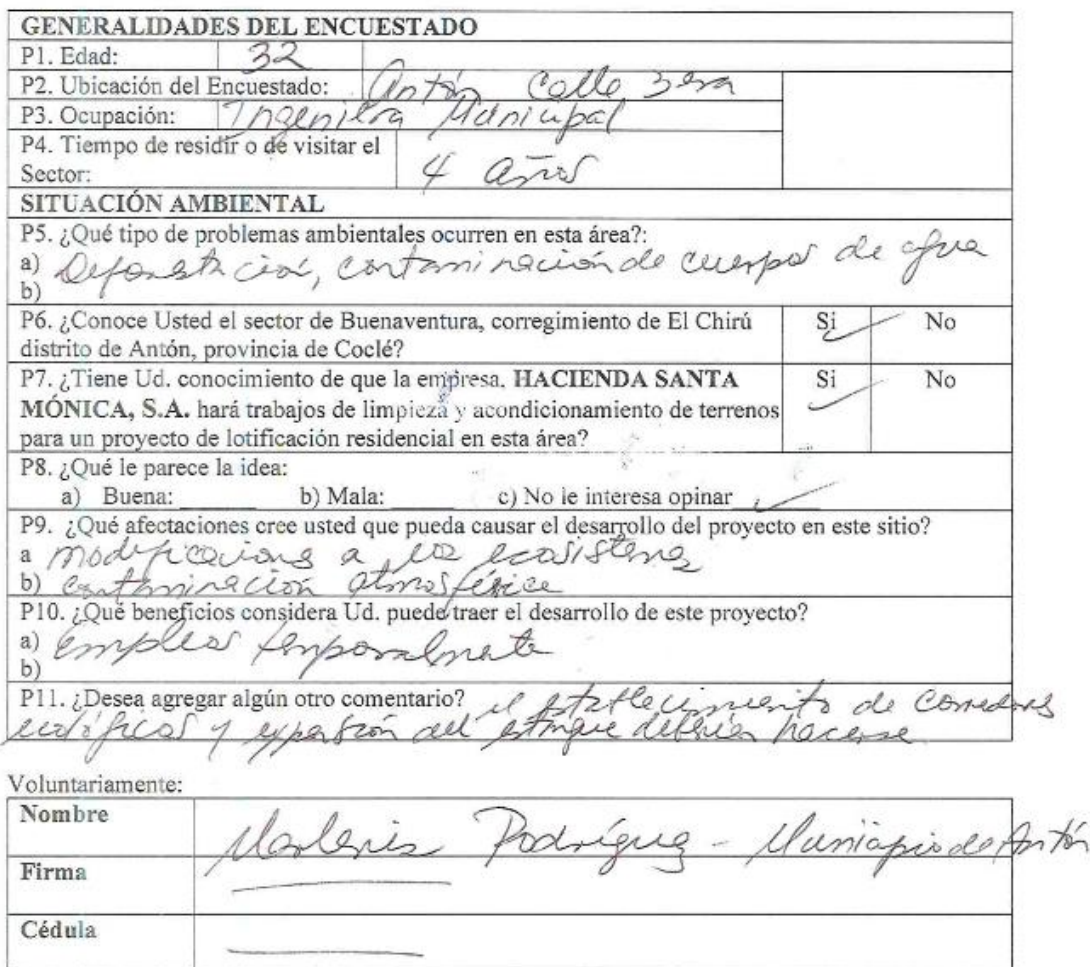 GENERALIDADES DEL ENCUESTADO
P1. Edad: 32
P2. Ubicación del Encuestado: Antón Calle 3era
P3. Ocupación: Ingeniera Municipal
P4. Tiempo de residir o de visitar el
Sector: 4 años
SITUACIÓN AMBIENTAL
P5. ¿Qué tipo de problemas ambientales ocurren en esta área?:
a) Deforestación, contaminación de cuerpos de agua
b)
P6. ¿Conoce Usted el sector de Buenaventura, corregimiento de El Chirú Si No
distrito de Antón, provincia de Coclé?
P7. ¿Tiene Ud. conocimiento de que la empresa, HACIENDA SANTA Si No
MÓNICA, S.A. hará trabajos de limpieza y acondicionamiento de terrenos
para un proyecto de lotificación residencial en esta área?
P8. ¿Qué le parece la idea:
a) Buena: b) Mala: c) No le interesa opinar
P9. ¿Qué afectaciones cree usted que pueda causar el desarrollo del proyecto en este sitio?
a modificaciones a los ecosistemas
b) contaminación atmosférica
P10. ¿Qué beneficios considera Ud. puede traer el desarrollo de este proyecto?
a) empleos temporalmente
b)
P11. ¿Desea agregar algún otro comentario? el establecimiento de corredores
ecológicos y expansión del estanque hacerse
Voluntariamente:
Nombre Marlenis Rodríguez - Municipio de Antón
Firma
Cédula